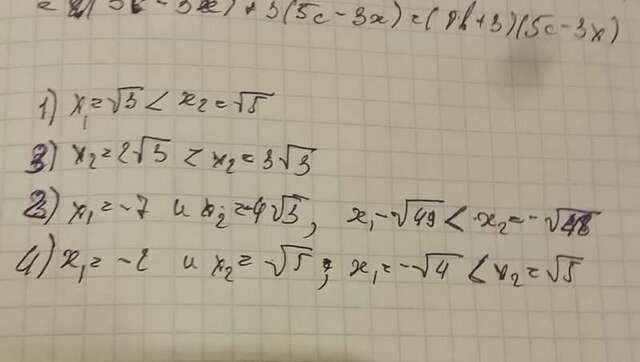 (5c-3x)+3(5c-3x)=(8b+3)(5c-3x)
1) x₁=√3 < x₂=√5
3) x₂=2√3 < x₂=3√3
2) x₁=-7 и x₂=-4√3, x₁-√49 < x₂=-√48
4) x₁=-2 и x₂=√5; x₁=-√4 < x₂=√5